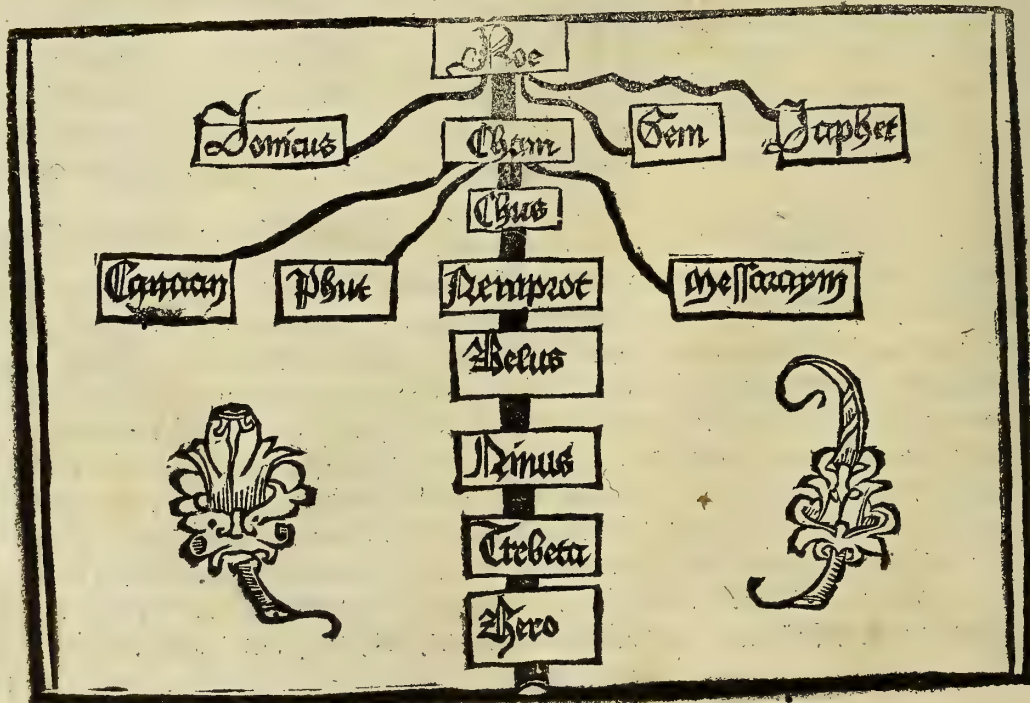 Noe
Jonicus
Cham
Sem
Japhet
Chus
Canaan
Phut
Nemprot
Messaraym
Belus
Ninus
Trebeta
Hero